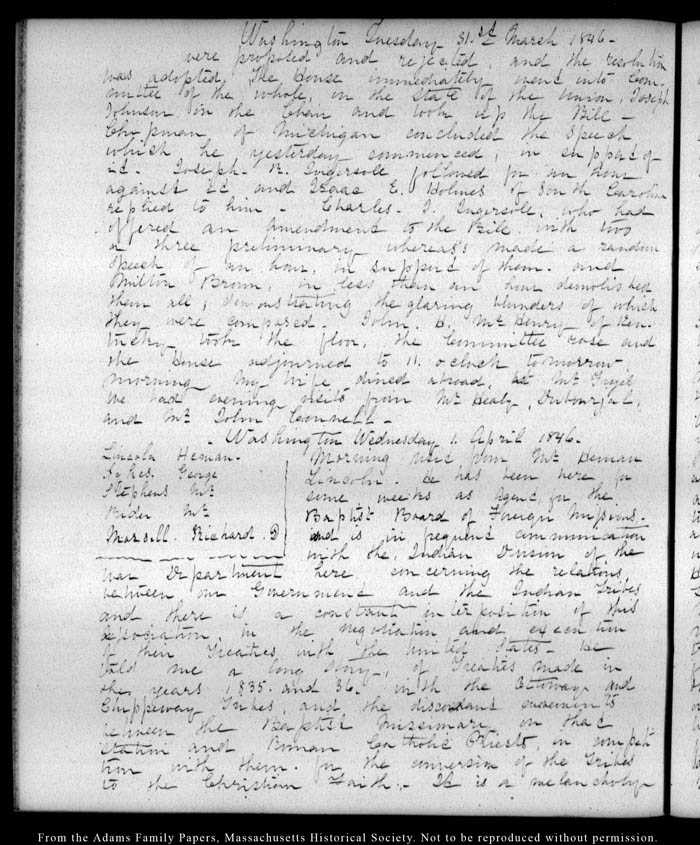 Washington Tuesday 31.st March 1846.
were proposed and rejected, and the resolution
was adopted. The House immediately went into Com-
mittee of the whole, on the State of the Union, Joseph
Johnson in the Chair and took up the Bill –
Chipman of Michigan concluded the Speech
which he yesterday commenced, in support of
it. Joseph R. Ingersoll followed for an hour
against it and Isaac E. Holmes of South Carolina
replied to him – Charles. J. Ingersoll, who had
offered an amendment to the Bill with two
or three preliminary whereas's made a random
speech of an hour, in support of them. and
Milton Brown, in less than an hour demolished
them all, demonstrating the glaring blunders of which
they were composed. John. H. McHenry of Ken-
tucky took the floor, the Committee rose and
the House adjourned to 11. o'clock tomorrow
morning My wife dined abroad, at Mr
We had evening visits from Mr Healy,
and Mr John Connell –
Washington Wednesday 1. April 1846.
Lincoln Heman.
Sykes. George
Stephens Mr
Rider Mr
Marsill. Richard. D
Morning visit from Mr Heman
Lincoln. He has been here, for
some weeks as Agent for the
Baptist Board of Foreign Missions.
and is in frequent communication
with the Indian Division of the
War Department here, concerning the relations
between, our Government and the Indian Tribes
and there is a constant interposition of this
association, in the negotiation and execution
of their Treaties with the United States – He
told me a long story, of Treaties made in
the years 1835. and 36. with the Ottoway and
Chippeway Tribes, and the discordant
between the Baptist Missionary on that
station and Roman Catholic Priests, in competi
tion with them. for the conversion of the Tribes
to the Christian Faith. – It is a melancholy
From the Adams Family Papers, Massachusetts Historical Society. Not to be reproduced without permission.